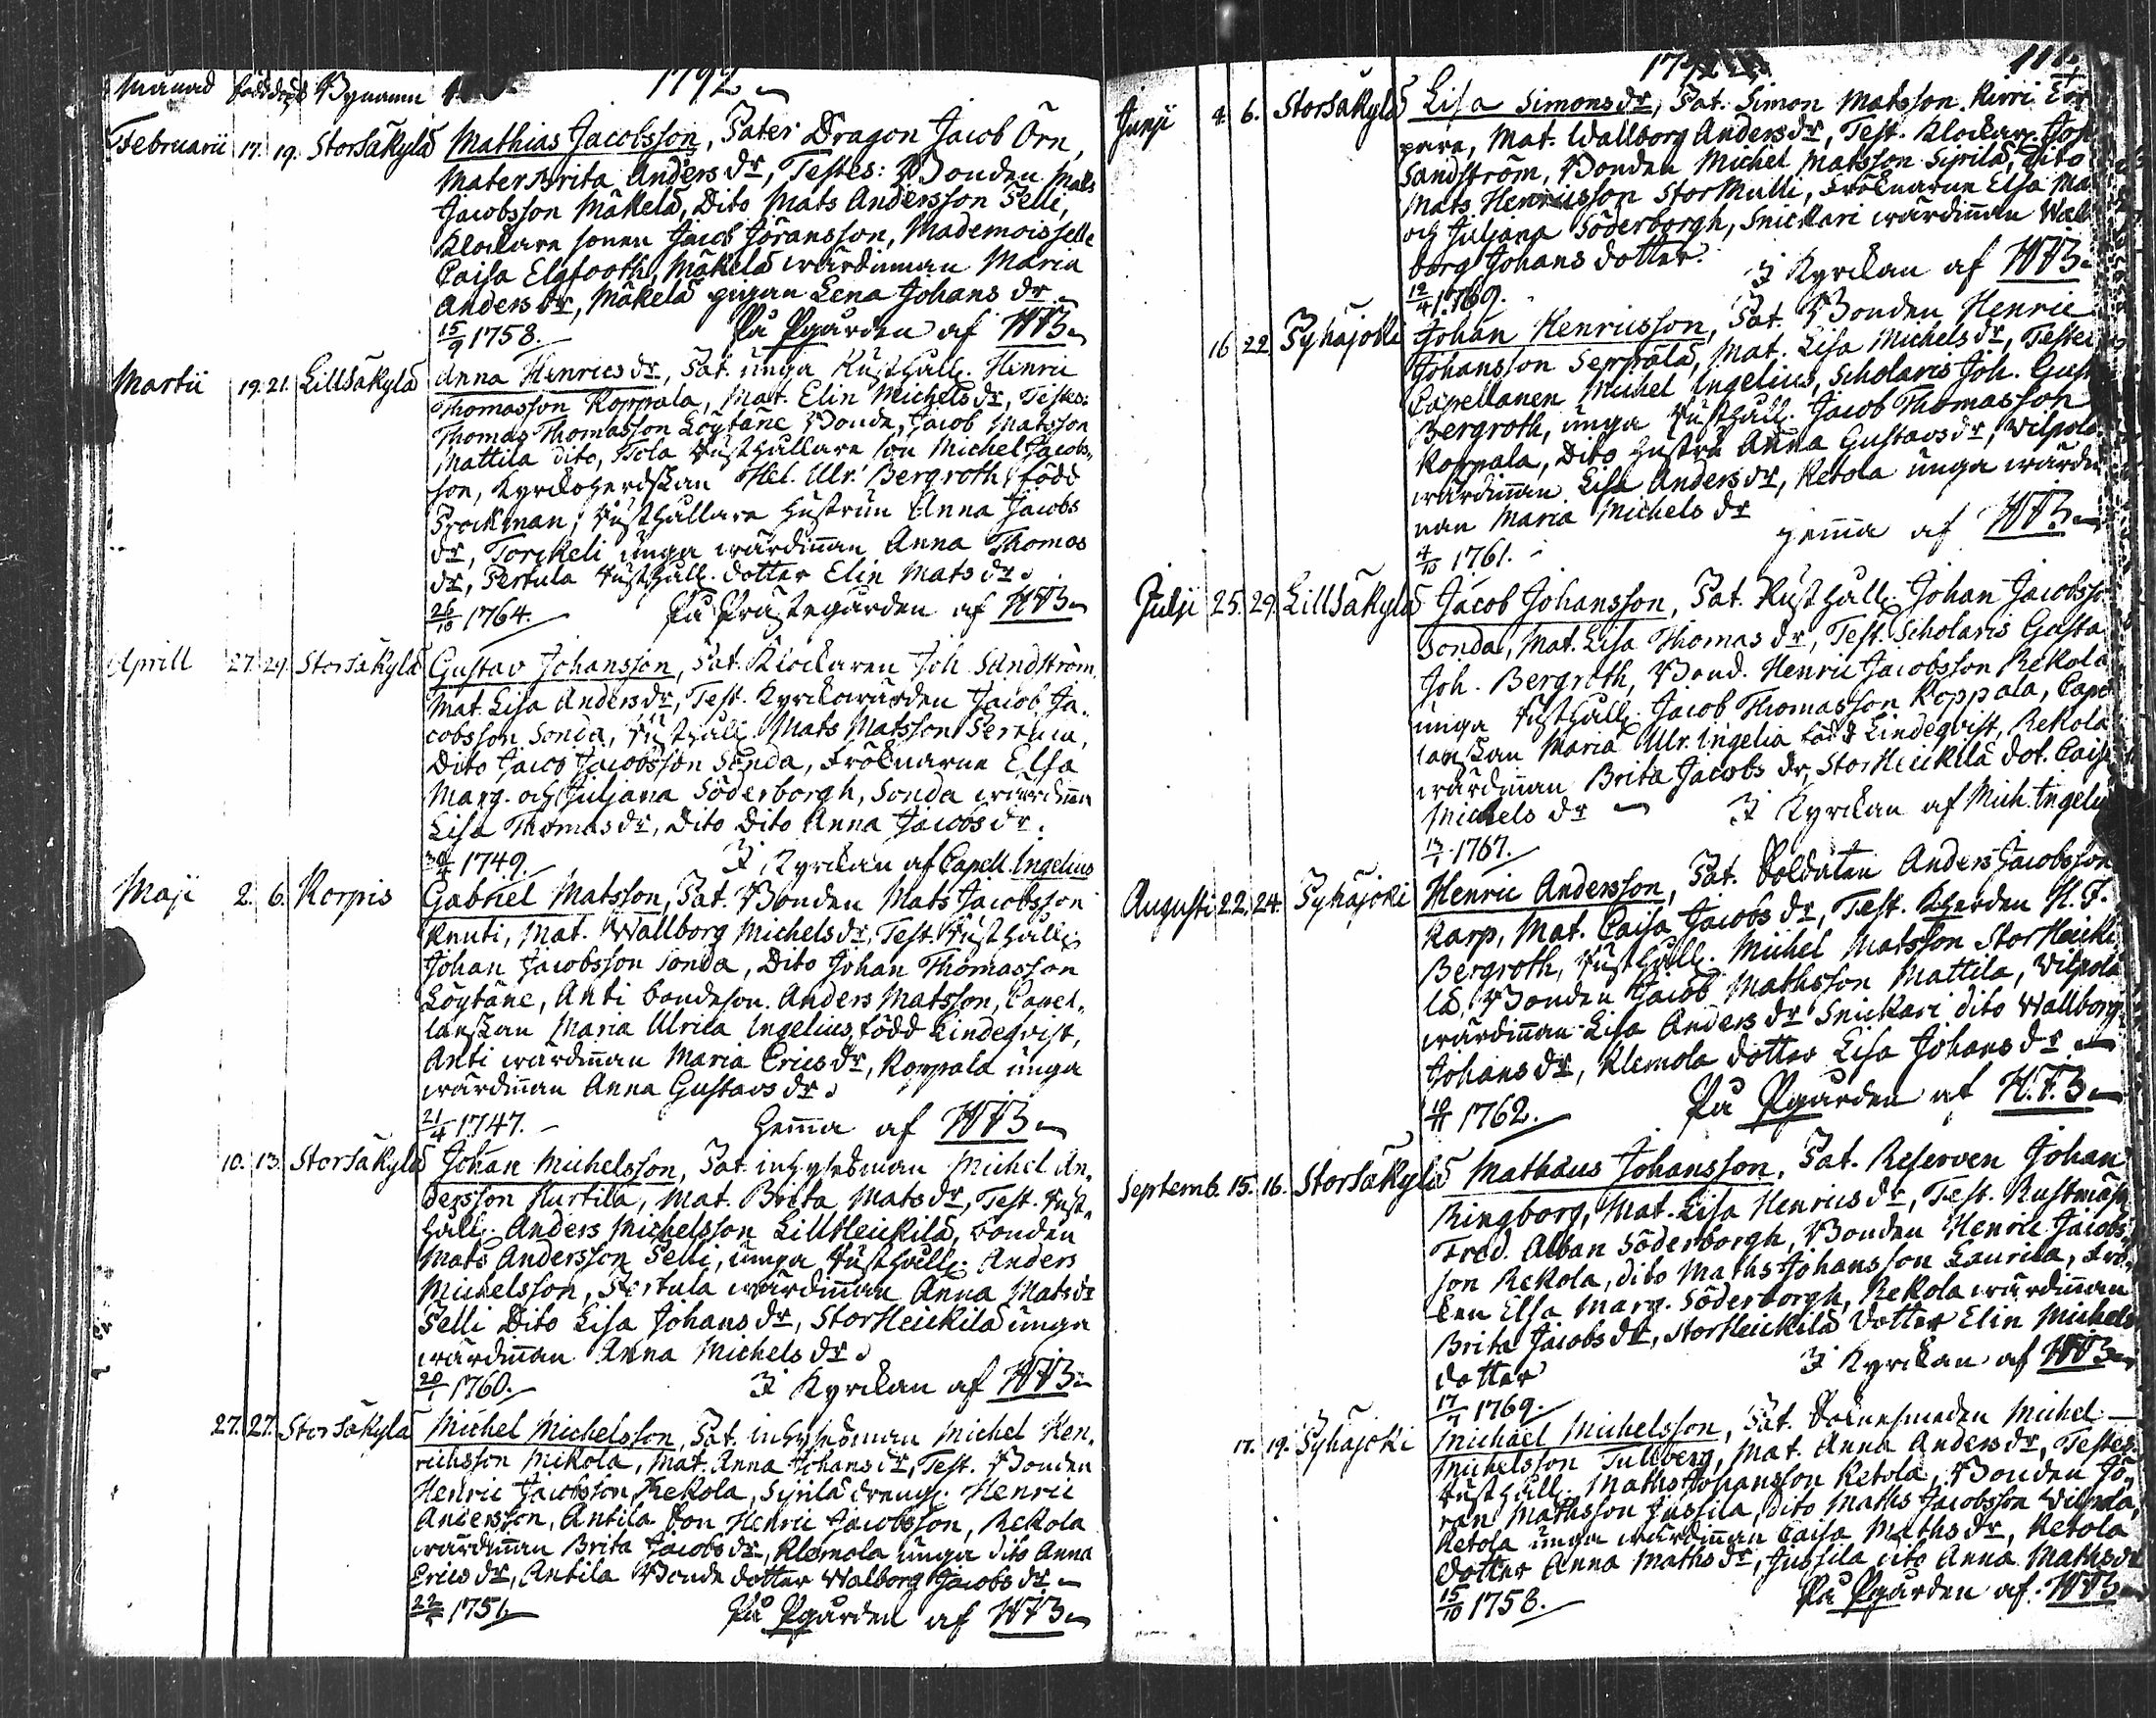 Månad född döpt Bynamn 1792
Februarii 17. 19. Storsäkylä Mathias Jacobsson, Pater Dragon Jacob Örn,
Mater Brita Anders dr, Testes: Bonden Mats
Jacobsson Mäkelä, Dito Mats Andersson Pelli,
Klockare sonen Jacob Jöransson, Mademoiselle
Caisa Elgfooth, Mäkelä wärdinnan Maria
Anders dr, Mäkelä pigan Lena Johans dr
15/9 1758. På Pgården af HFB
Martii 19. 21. Lillsäkylä Anna Henrics dr, Pat. unga Rusthåll. Henric
Thomasson Koppala, Mat. Elin Michels dr, Testes:
Thomas Thomasson Löytäne Bonde, Jacob Matsson
Mattila dito, Isola Rusthållare son Michel Jacobs-
son, Kyrkoherdskan Hel. Ulr. Bergroth, född
Prockman, Rusthållare hustrun Anna Jacobs
dr, Torckeli unga wärdinnan Anna Thomas
dr, Pertula Rusthåll. dotter Elin Mats dr.
26/10 1764. På Prästegården af HFB
Aprill 27. 29. Storsäkylä Gustav Johansson, Pat. Klockaren Joh. Sandström,
Mat. Lisa Anders dr, Test. Kyrckowärden Jacob Ja-
cobsson Sonda, Rusthåll. Mats Matsson Pertula,
Dito Jacob Jacobsson Sonda, Fröknarne Elsa
Marg. och Juliana Söderborgh, Sonda wärdinnan
Lisa Thomas dr, Dito Dito Anna Jacobs dr.
1749. I Kyrckan af Capell. Ingelius
Maji 2. 6. Korpis Gabriel Matsson, Pat. Bonden Mats Jacobsson
Knuti, Mat. Wallborg Michels dr, Test. Rusthåll.
Johan Jacobsson Sonda, Dito Johan Thomasson
Löytäne, Anti bondeson Anders Matsson, Capel-
lanskan Maria Ulrica Ingelius, född Lindeqvist,
Anti wärdinnan Maria Erics dr, Koppala unga
wärdinnan Anna Gustavs dr.
21/4 1747. hemma af HFB
10. 13. Storsäkylä Johan Michelsson, Pat. inhysesman Michel An-
dersson Kurtila, Mat. Brita Mats dr, Test. Rust-
håll. Anders Michelsson LillHeickilä, bonden
Mats Andersson Pelli, unga Rusthåll. Anders
Michelsson, Pertula wärdinnan Anna Mats dr
Pelli Dito Lisa Johans dr, StorHeickilä unga
wärdinnan Anna Michels dr.
20/1 1760. I Kyrckan af HFB
27. 27. Storsäkylä Michel Michelsson, Pat. inhysesman Michel Hen-
richsson Mikola, Mat. Anna Johans dr, Test. Bonden
Henric Jacobsson Rekola, Syrilä dreng. Henric
Andersson, Antila Son Henric Jacobsson, Rekola
wärdinnan Brita Jacobs dr, Klemola unga dito Anna
Erics dr, Antila Bonde dotter Walborg Jacobs dr
1751 På Pgården af HFB
1792
Junji 4. 6. Storsäkylä Lisa Simons dr, Pat. Simon Matsson Kirri Tor
pare, Mat. Wallborg Anders dr, Test. Klockar. Joh
Sandström, Bonden Michel Matsson Syrilä, Dito
Mats Henricsson StorMulli, Fröknarne Elsa Ma
och Juliana Söderborgh, Snickari wärdinnan Wall
borg Johans dotter. I Kyrckan af HFB
12/4 1769.
16 22. Pyhäjoki Johan Henricsson, Pat. Bonden Henric
Johansson Seppälä, Mat. Lisa Michels dr, Testes
Capellanen Michel Ingelius, Scholaris Joh. Gust
Bergroth, unga Rusthåll. Jacob Thomasson
Koppala, Dito hustru Anna Gustavs dr, Vilpola
wärdinnan Lisa Anders dr, Ketola unga wärdin
nan Maria Michels dr
4/10 1761. hemma af HFB
Julji 25. 29. Lillsäkylä Jacob Johansson, Pat. Rusthåll. Johan Jacobsso
Sonda, Mat. Lisa Thomas dr, Test. Scholaris Gusta
Joh. Bergroth, Bond. Henric Jacobsson Rekola
unga Rusthåll. Jacob Thomasson Koppala, Capel
lanskan Maria Ulr. Ingelia född Lindeqvist, Rekola
wärdinnan Brita Jacobs dr, StorHeickilä dot. Caisa
Michels dr I Kyrckan af Mich. Ingeliu
13/1 1767.
Augusti 22. 24. Pyhäjoki Henric Andersson, Pat. Soldaten Anders Jacobsson
Karp, Mat. Caisa Jacobs dr, Test. Kherden H. F.
Bergroth, Rusthåll. Michel Matsson StorHeicki
lä, Bonden Jacob Mathsson Mattila, Vilpola
wärdinnan Lisa Anders dr Snickari dito Wallborg
Johans dr, Klemola dotter Lisa Johans dr
1762. På Pgården af H.F.B
Septemb. 15. 16. Storsäkylä Mathäus Johansson, Pat. Reserven Johan
Ringborg, Mat. Lisa Henrics dr, Test. Rustmäst
Fred. Alban Söderborgh, Bonden Henric Jacobs-
son Rekola, dito Maths Johansson Laurila, Frö-
ken Elsa Marg. Söderborgh, Rekola wärdinnan
Brita Jacobs dr, StorHeickilä dotter Elin Michels
dotter I Kyrckan af HFB
17/7 1769.
17. 19. Pyhäjoki Michäel Michelsson, Pat. Socknesmeden Michel
Michelsson Tullberg, Mat. Anna Anders dr, Testes
Rusthåll. Maths Johansson Ketola, Bonden Jö-
ran Mathsson Jussila, dito Maths Jacobsson Vilpola,
Ketola unga wärdinnan Caisa Maths dr, Ketola
dotter Anna Maths dr, Jussila dito Anna Maths dr
15/10 1758. På Pgården af HFB